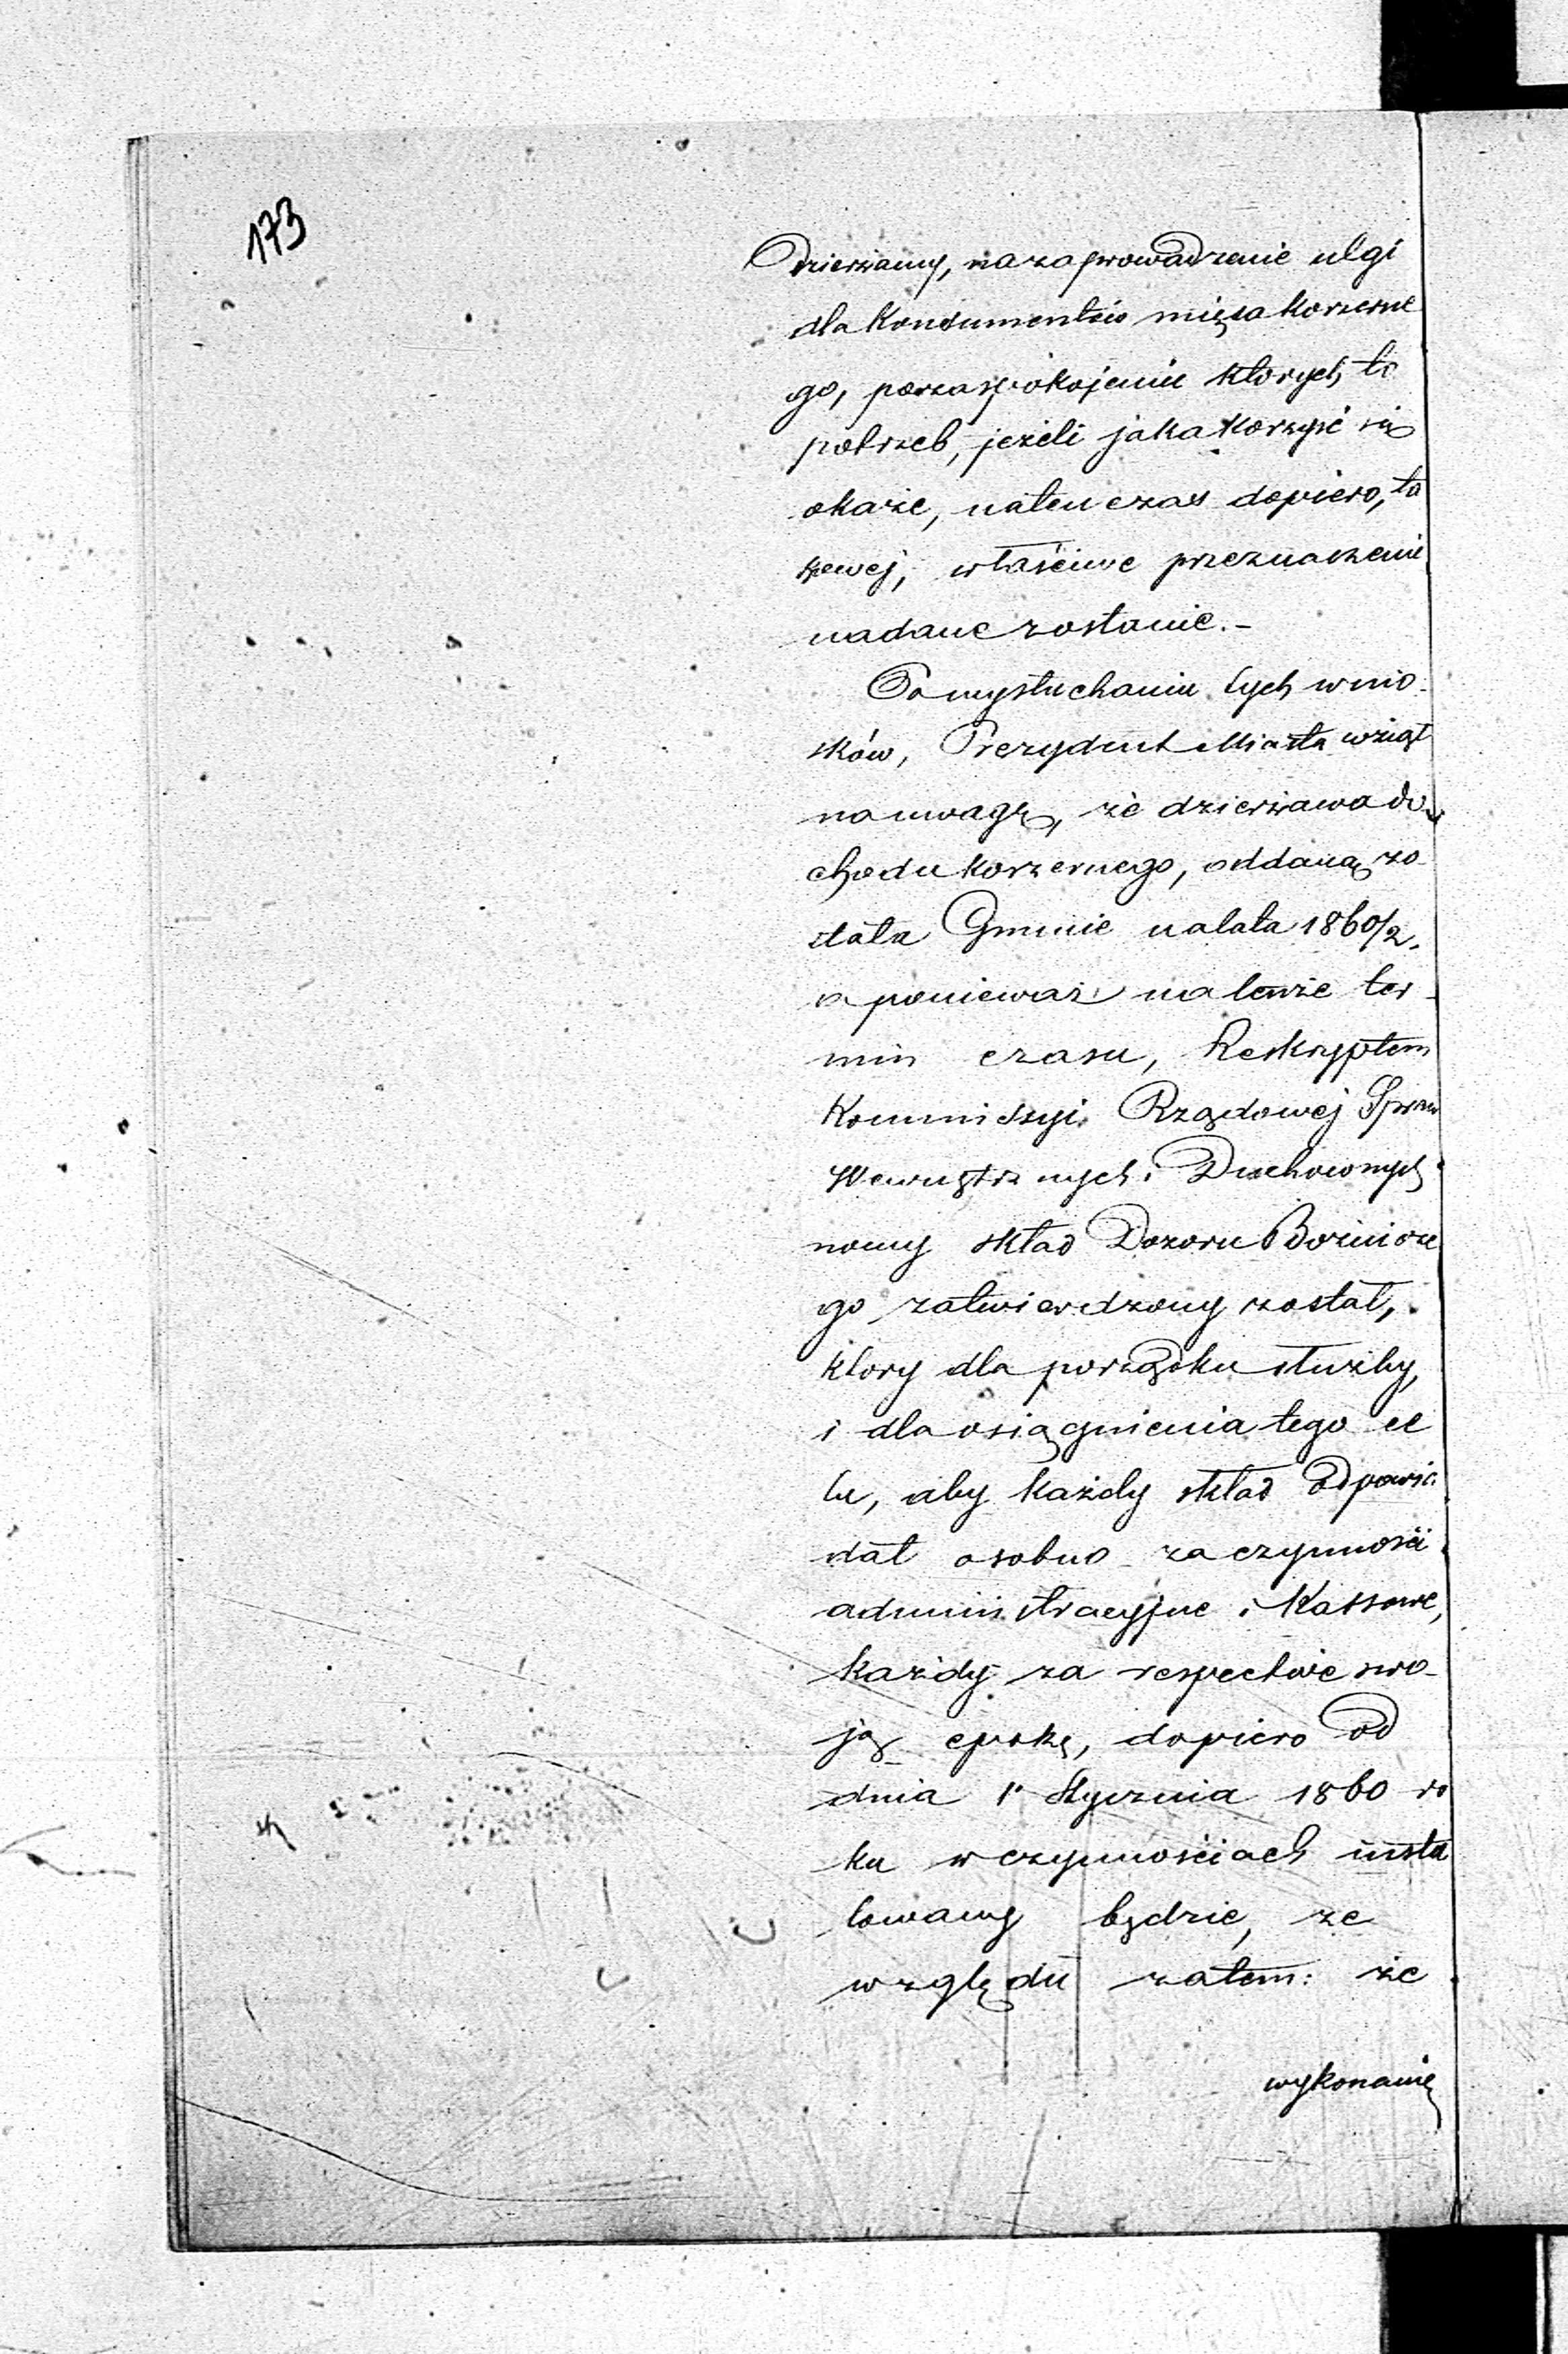 173
Dzierżawy, na zaprowadzenie ulgi
dla Konsumentów mięsa Koszerne
go, po zaspokojeniu których to
potrzeb, jeżeli jaka Korzyść się
okaże, natenczas dopiero, ta
kowej, właściwe przeznaczenie
nadane zostanie.-
Po wysłuchaniu tych wnio-
sków, Prezydent Miasta wziął
na uwagę, że dzierżawa do
chodu koszernego, oddaną zo
stała Gminie na lata 1860/2,
a ponieważ na tenże ter-
min czasu, Reskryptem
Kommissyi Rządowej Spraw
Wewnętrznych i Duchownych
nowy skład Dozoru Bożnicze
go zatwierdzony został,
który dla porządku służby,
i dla osiągnienia tego ce
lu, aby każdy skład odpowie
dał osobno za czynności
administracyjne i Kassowe,
każdy za respective swo-
ją epokę, dopiero od
dnia 1° Stycznia 1860 ro
ku w czynnościach insta
lowany będzie, ze
względu zatem: że
wykonanie